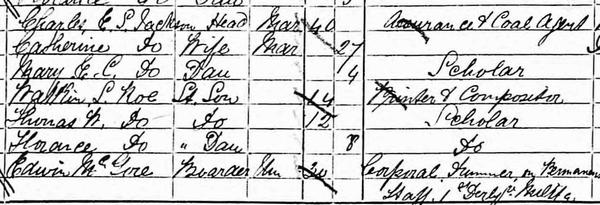 Charles E. S. Jackson Head Mar 40 Assurance & Coal Agent
Catherine Do Wife Mar 27
Mary E. C. Do Dau 4 Scholar
L. Noe St. Son 14 Printer & Compositor
Thomas W. Do Do 12 Scholar
Florance Do " Dau 8 Do
Edwin McGore Boarder Un 20 Corporal, on Permanent
Staff, 1st Derbys. Militia